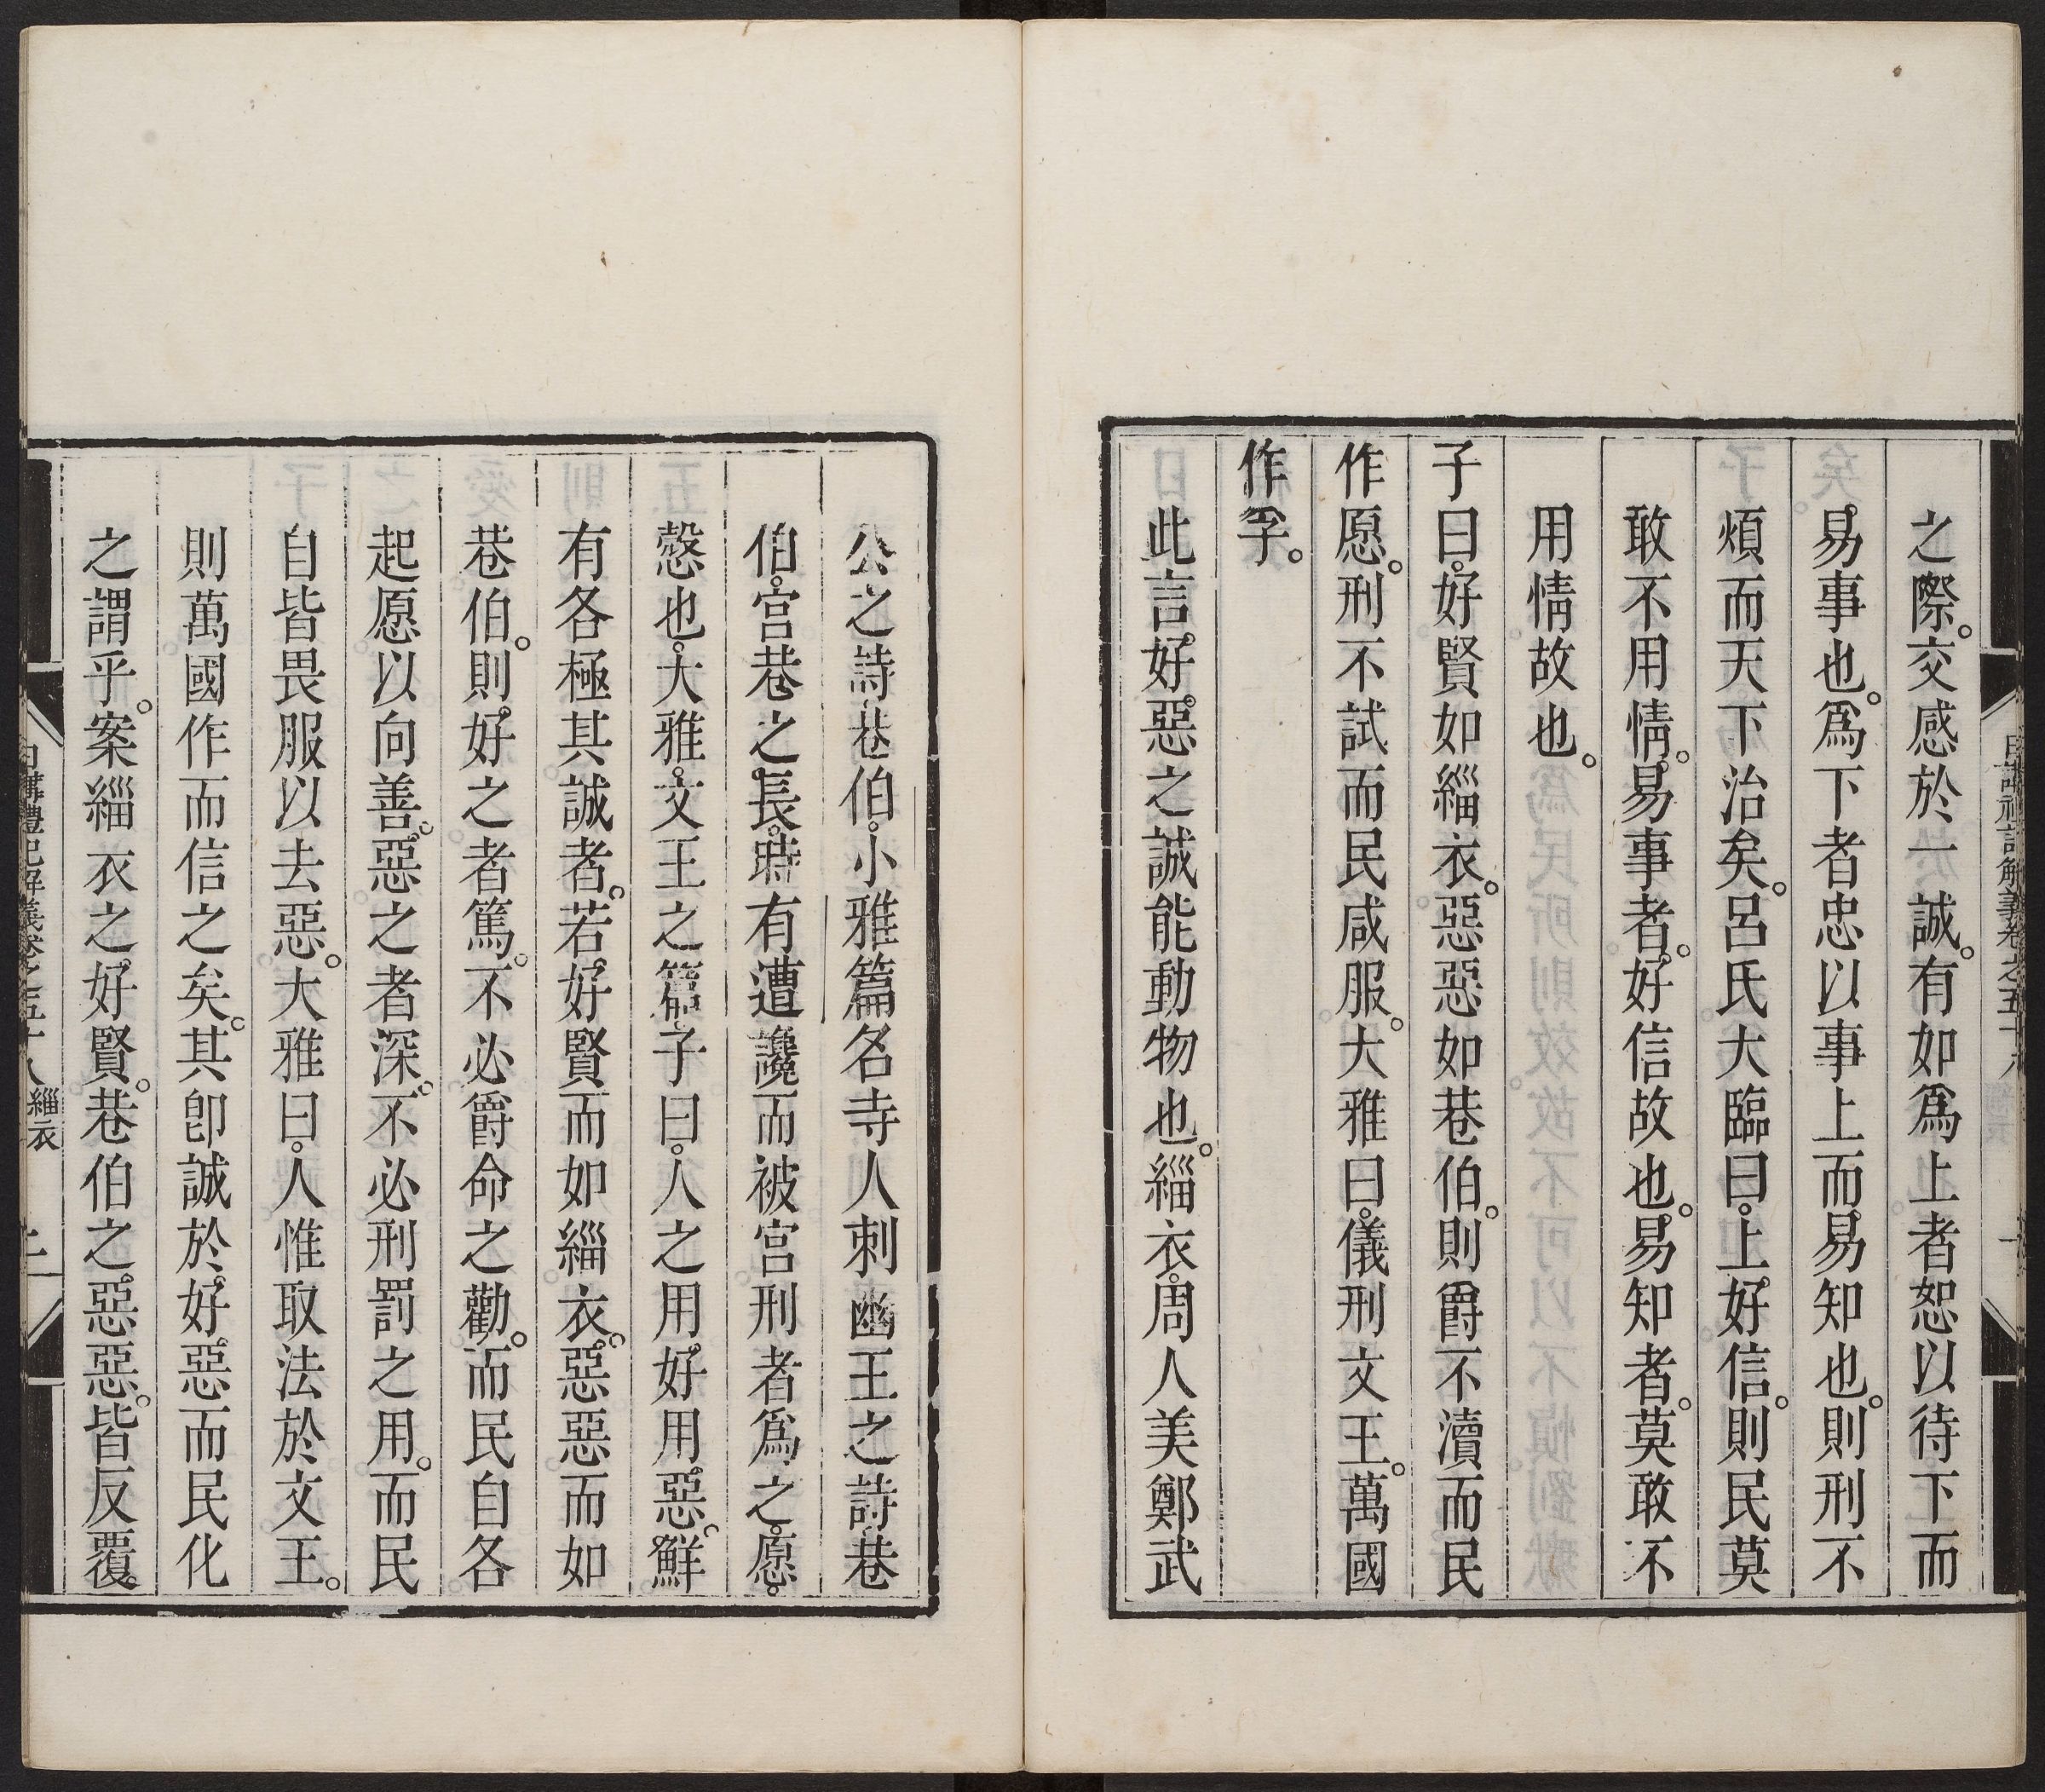 之際。交感於一誠。有如爲上者恕以待下而
易事也。爲下者忠以事上而易知也。則刑不
煩而天下治矣。呂氏大臨曰。上好信。則民莫
敢不用情。易事者。好信故也。易知者。莫敢不
用情故也。
子曰。好賢如緇衣。惡惡如巷伯。則爵不瀆而民
作愿。刑不試而民咸服。大雅曰。儀刑文王。萬國
作孚。
此言好惡之誠能動物也。緇衣。周人美鄭武
公之詩。巷伯。小雅篇名寺人刺幽王之詩巷
伯。宫巷之長。時有遭讒而被宫刑者爲之。愿。
愨也。大雅。文王之篇。子曰。人之用好用惡。鮮
有各極其誠者。若好賢而如緇衣。惡惡而如
巷伯。則好之者篤。不必爵命之勸。而民自各
起愿以向善。惡之者深。不必刑罰之用。而民
自皆畏服以去惡。大雅曰。人惟取法於文王。
則萬國作而信之矣。其卽誠於好惡而民化
之謂乎。案緇衣之好賢。巷伯之惡惡。皆反覆。
日講禮記解義卷之五十八 緇衣 二